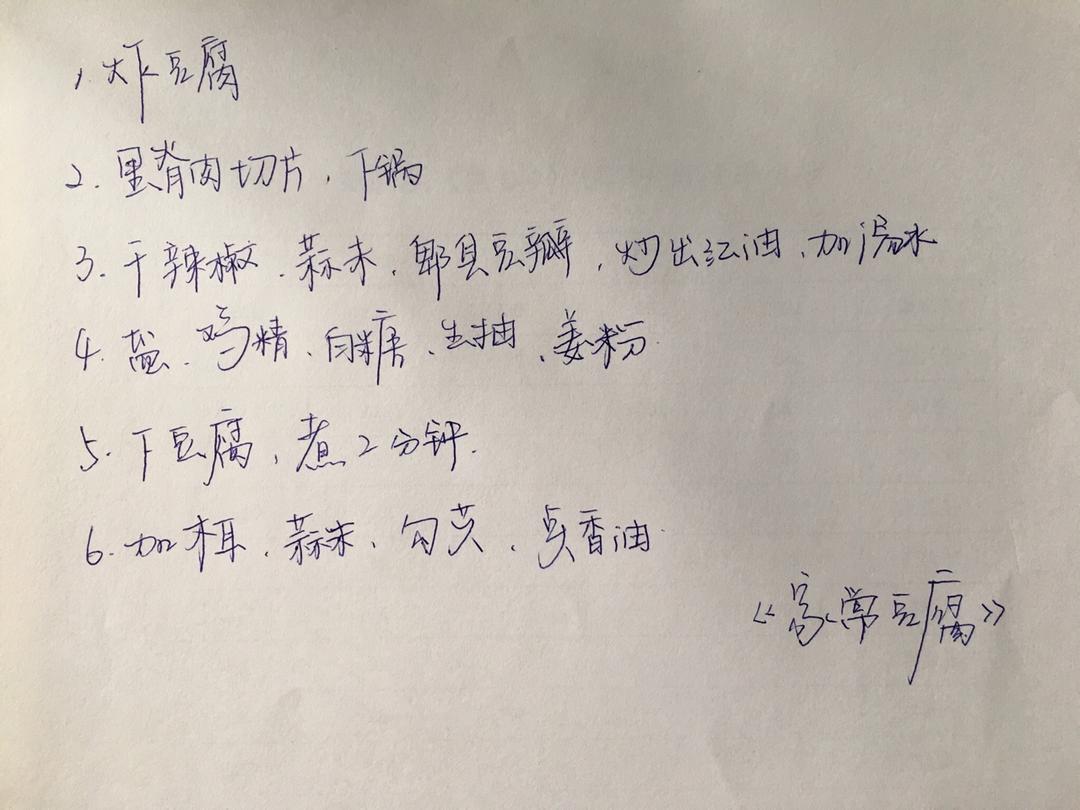 1. 炸豆腐
2. 里脊肉切片，下锅
3. 干辣椒、蒜末、郫县豆瓣，炒出红油，加汤水
4. 盐、鸡精、白糖、生抽、姜粉.
5. 下豆腐，煮2分钟.
6. 加木耳、蒜末、勾芡、点香油.
《家常豆腐》